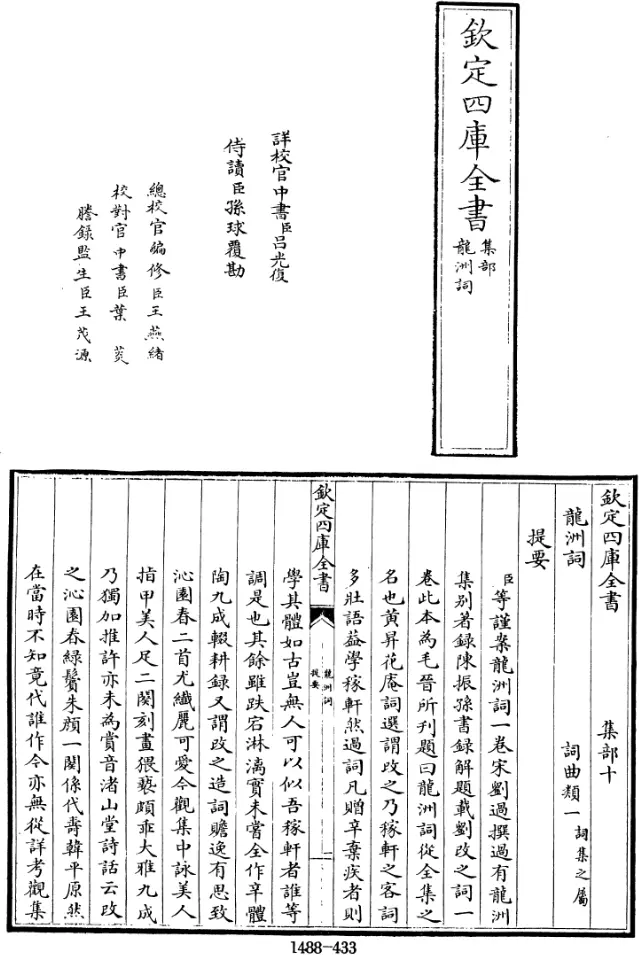 欽定四庫全書
集部
龍洲詞
詳校官中書臣呂光復
侍讀臣孫球覆勘
總校官編修臣王燕緒
校對官中書臣葉菼
謄錄監生臣王茂源
欽定四庫全書
集部十
龍洲詞
詞曲類一詞集之屬
提要
臣等謹案龍洲詞一卷宋劉過撰過有龍洲
集别著録陳振孫書録解題載劉改之詞一
卷此本為毛晉所刊題曰龍洲詞從全集之
名也黄昇花庵詞選謂改之乃稼軒之客詞
多壯語葢學稼軒然過詞凡贈辛棄疾者則
欽定四庫全書
龍洲詞
提要
二
學其體如古豈無人可以似吾稼軒者誰等
調是也其餘雖跌宕淋漓實未嘗全作辛體
陶九成輟耕録又謂改之造詞贍逸有思致
沁園春二首尤纖麗可愛今觀集中詠美人
指甲美人足二闋刻畫猥褻頗乖大雅九成
乃獨加推許亦未為賞音渚山堂詩話云改
之沁園春緑鬢朱顔一闋係代壽韓平原然
在當時不知竟代誰作今亦無從詳考觀集
1488-433